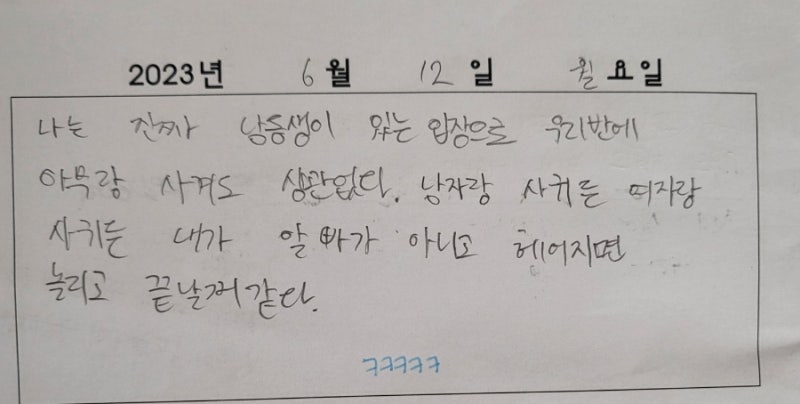 2023년 6월 12일 월요일
나는 진짜 남동생이 있는 입장으로 우리반에
아무랑 사겨도 상관없다. 남자랑 사귀든 여자랑
사귀든 내가 알 빠가 아니고 헤어지면
놀리고 끝날꺼 같다.
ㅋㅋㅋㅋㅋ